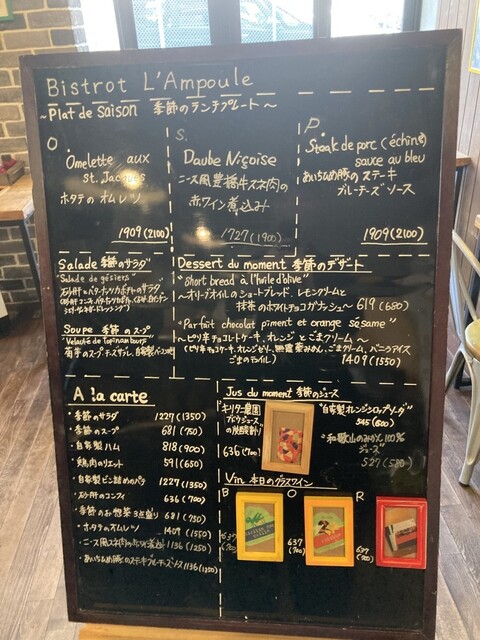 Bistrot L'Ampoule
~Plat de saison 季節のランチプレート~
O.
Omelette aux
st. Jacques
ホタテのオムレツ
1909(2100)
S.
Daube Niçoise
ニース風豊橋牛スネ肉の
赤ワイン煮込み
1727(1900)
P.
Steak de porc (échine)
sauce au bleu
あいちめ豚のステーキ
ブルーチーズソース
1909(2100)
Salade 季節のサラダ
"Salade de gésiers"
Soupe 季節のスープ
"Velouté de topinambours"
菊芋のスープ
Dessert du moment 季節のデザート
"Short bread à l'huile d'olive"
~オリーブオイルのショートブレッド、レモンクリームと
抹茶のホワイトチョコガナッシュ~ 619(680)
"Parfait chocolat piment et orange sésame"
~ピリ辛チョコレートケーキ、オレンジとごまクリーム~
(ピリ辛チョコケーキ、オレンジゼリー、無農薬みかん、ごまクリーム、バニラアイス
ごまのテュイル) 1409(1550)
A la carte
・季節のサラダ 1227(1350)
・季節のスープ 681(750)
・自家製ハム 818(900)
・鶏肉のリエット 591(650)
・自家製ビン詰めのパテ 1227(1350)
・砂肝のコンフィ 636(700)
・季節のお惣菜3点盛り 681(750)
・ホタテのオムレツ 1409(1550)
・ニース風スネ肉の赤ワイン煮込み 1136(1250)
・あいちめ豚のステーキブルーチーズソース 1136(1250)
Jus du moment 季節のジュース
"キリタ農園
ぶどうジュース
の炭酸割"
636(700)
"自家製オレンジシロップソーダ"
545(600)
"和歌山のみかん100%
ジュース"
527(580)
Vin 本日のグラスワイン
B O R
637
(700)
637
(700)
637
(700)